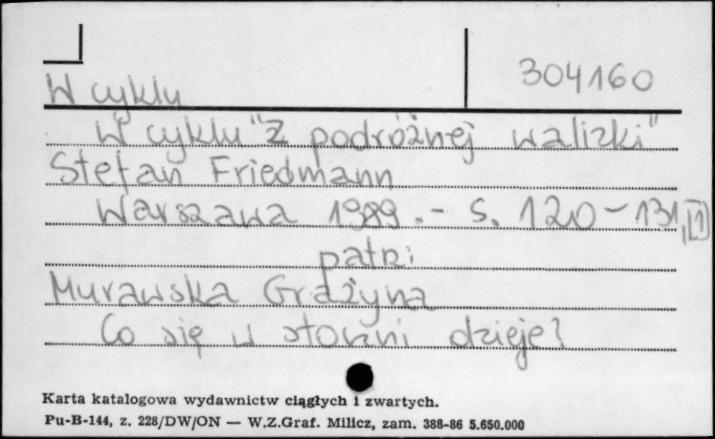 304160
W cyklu
W cyklu "Z podróżnej walizki"
Stefan Friedmann
Warszawa 1989.- S. 120-131,[1]
patrz:
Murawska Grażyna
Co się w stoczni dzieje?
Karta katalogowa wydawnictw ciągłych i zwartych.
Pu-B-144, z. 228/DW/ON — W.Z.Graf. Milicz, zam. 388-86 5.650.000